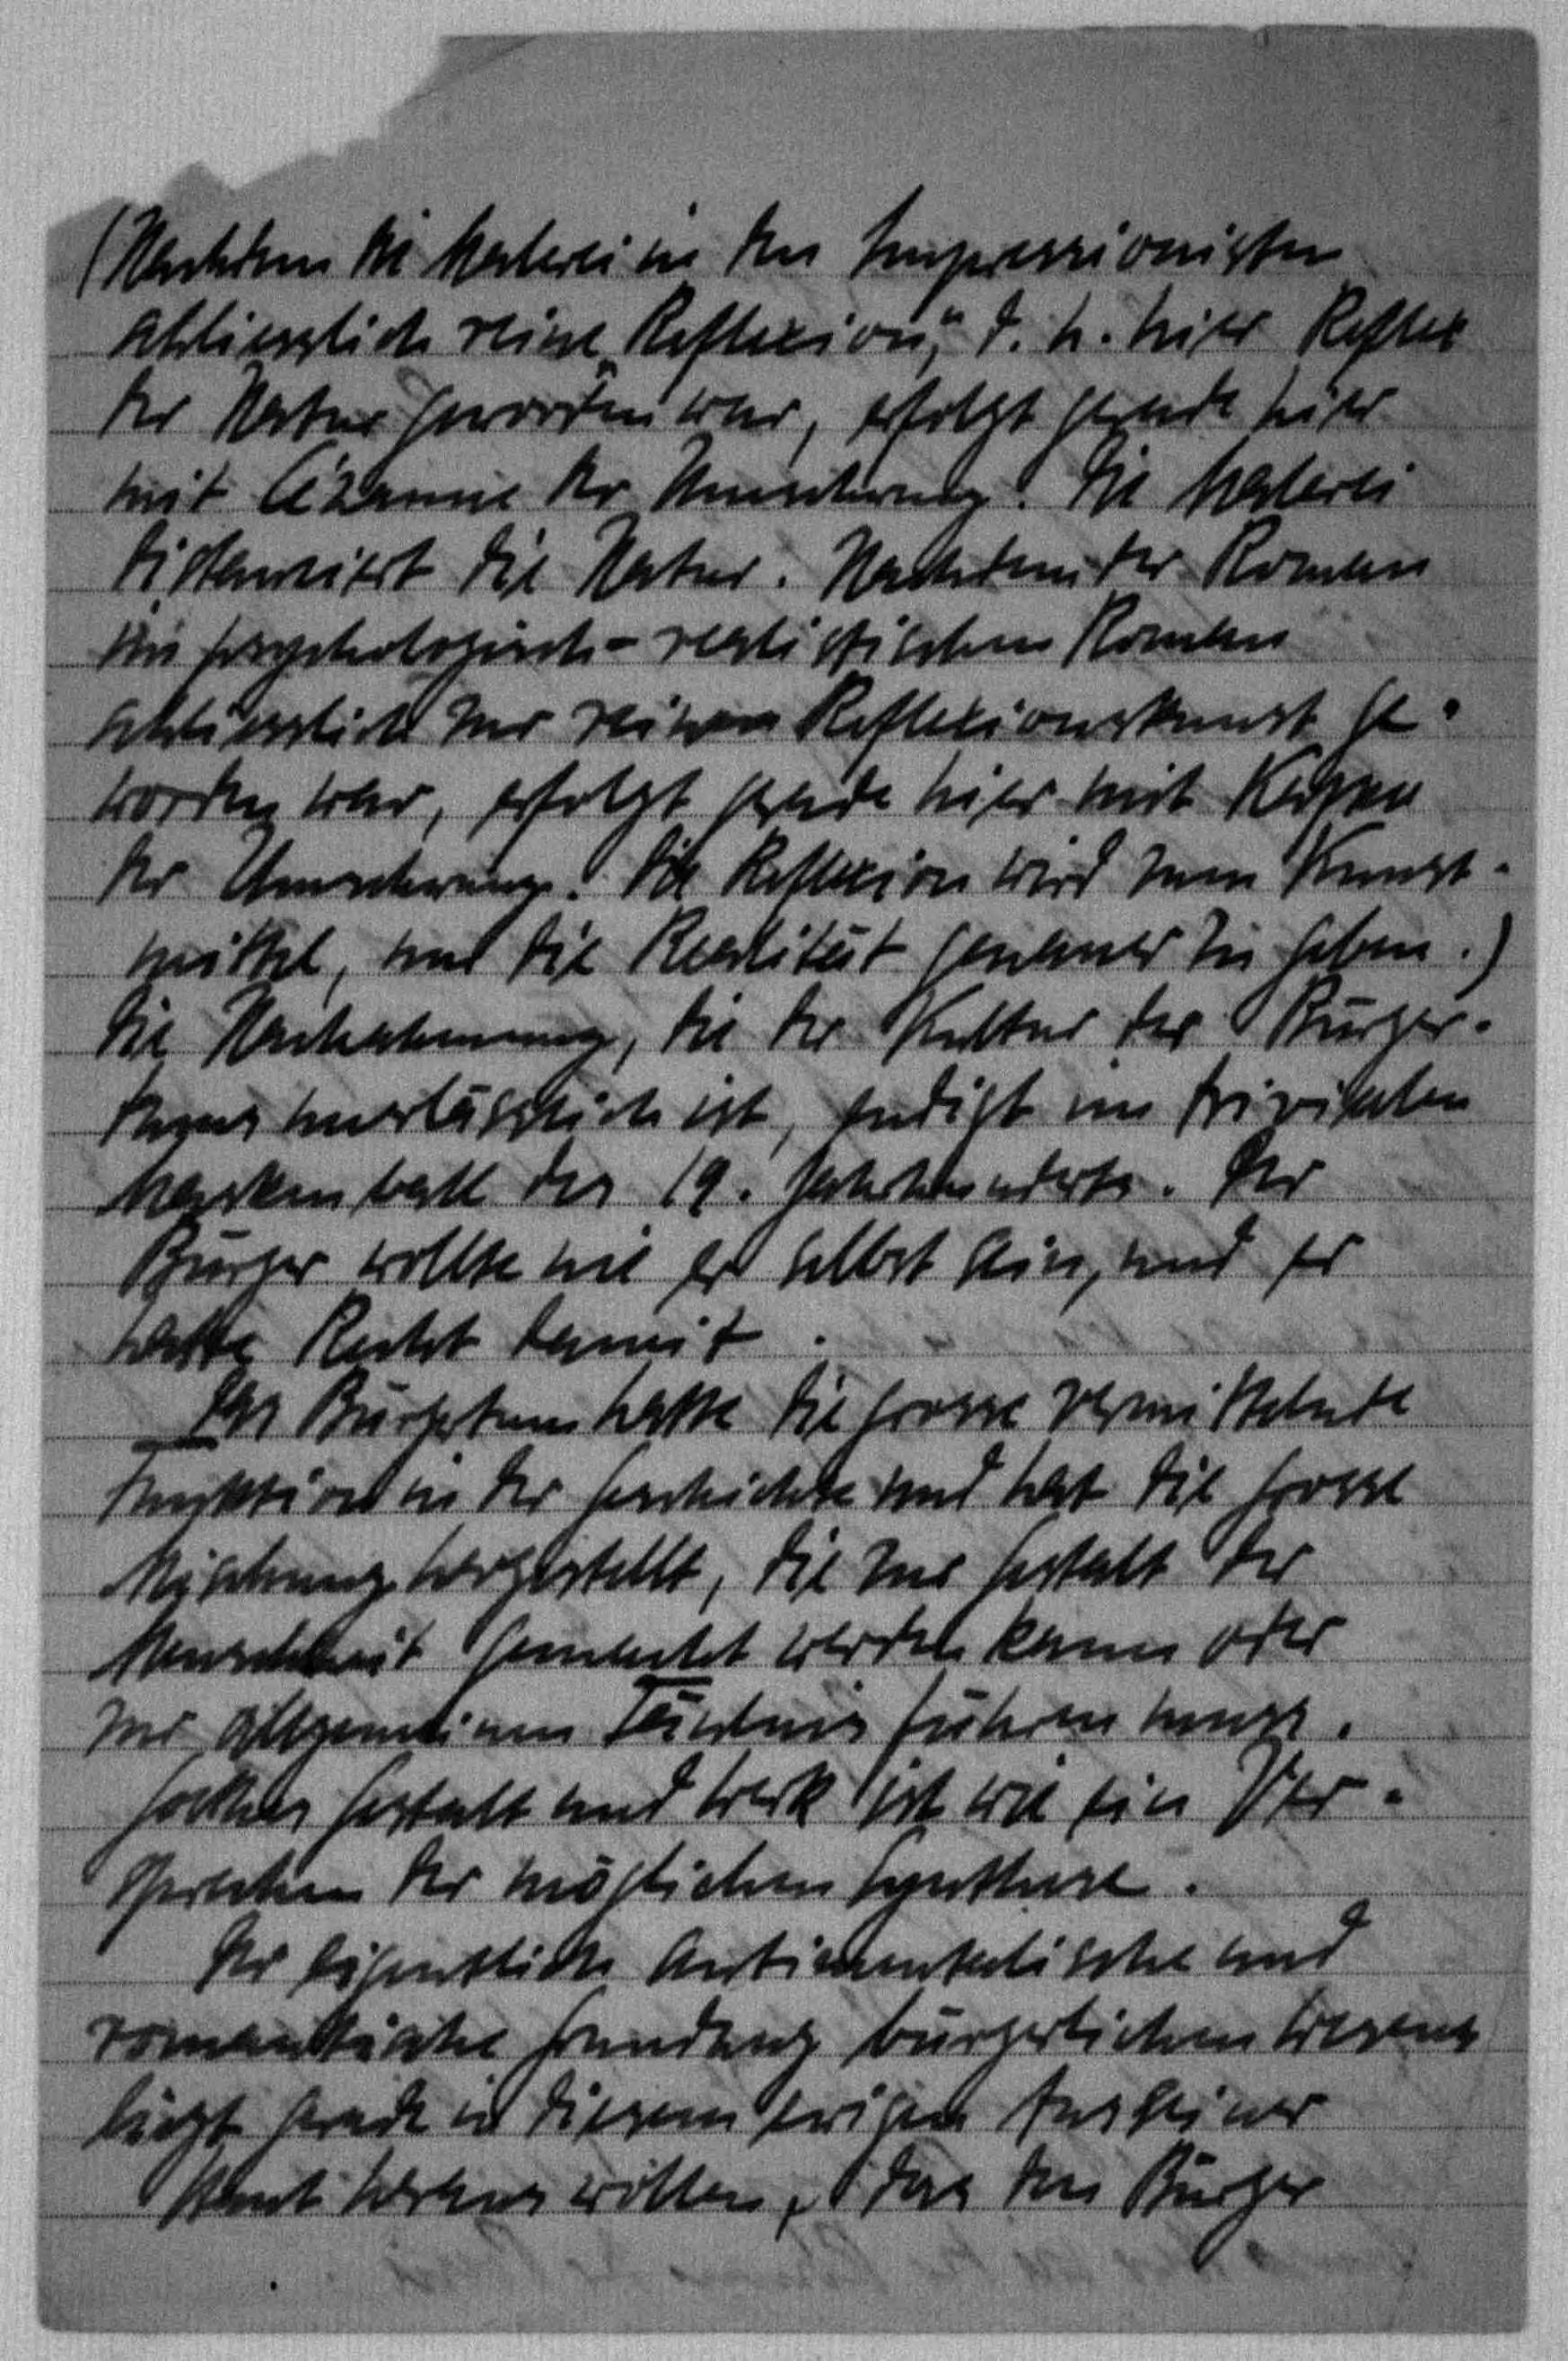 (Nachdem die Malerei in den Impressionisten
schliesslich reine „Reflexion“, d. h. hier Reflex
der Natur geworden war, erfolgt gerade hier
mit Cézanne der Umschwung. Die Malerei
distanziert die Natur. Nachdem der Roman
im psychologisch-realistischen Roman
schliesslich zur reinen Reflexionskunst ge-
worden war, erfolgt gerade hier mit Kafka
der Umschwung. Die Reflexion wird zum Kunst-
mittel, um die Realität genauer zu geben.)
Die Nachahmung, die der Kultur des Bürger-
tums unerlässlich ist, endigt im trivialen
Maskenball des 19. Jahrhunderts. Der
Bürger wollte nie er selbst sein, und er
hatte Recht damit.
Das Bürgertum hatte die grosse vermittelnde
Funktion in der Geschichte und hat die grosse
Mischung hergestellt, die zur Gestalt der
Menschheit gemacht werden kann oder
zur allgemeinen Fäulnis führen muss.
Goethes Gestalt und Werk ist wie ein Ver-
sprechen der möglichen Synthese.
Der eigentliche und
romantische bürgerlichen Wesens
liegt gerade in diesem ewigen Aus seiner
Haut heraus wollen, das den Bürger